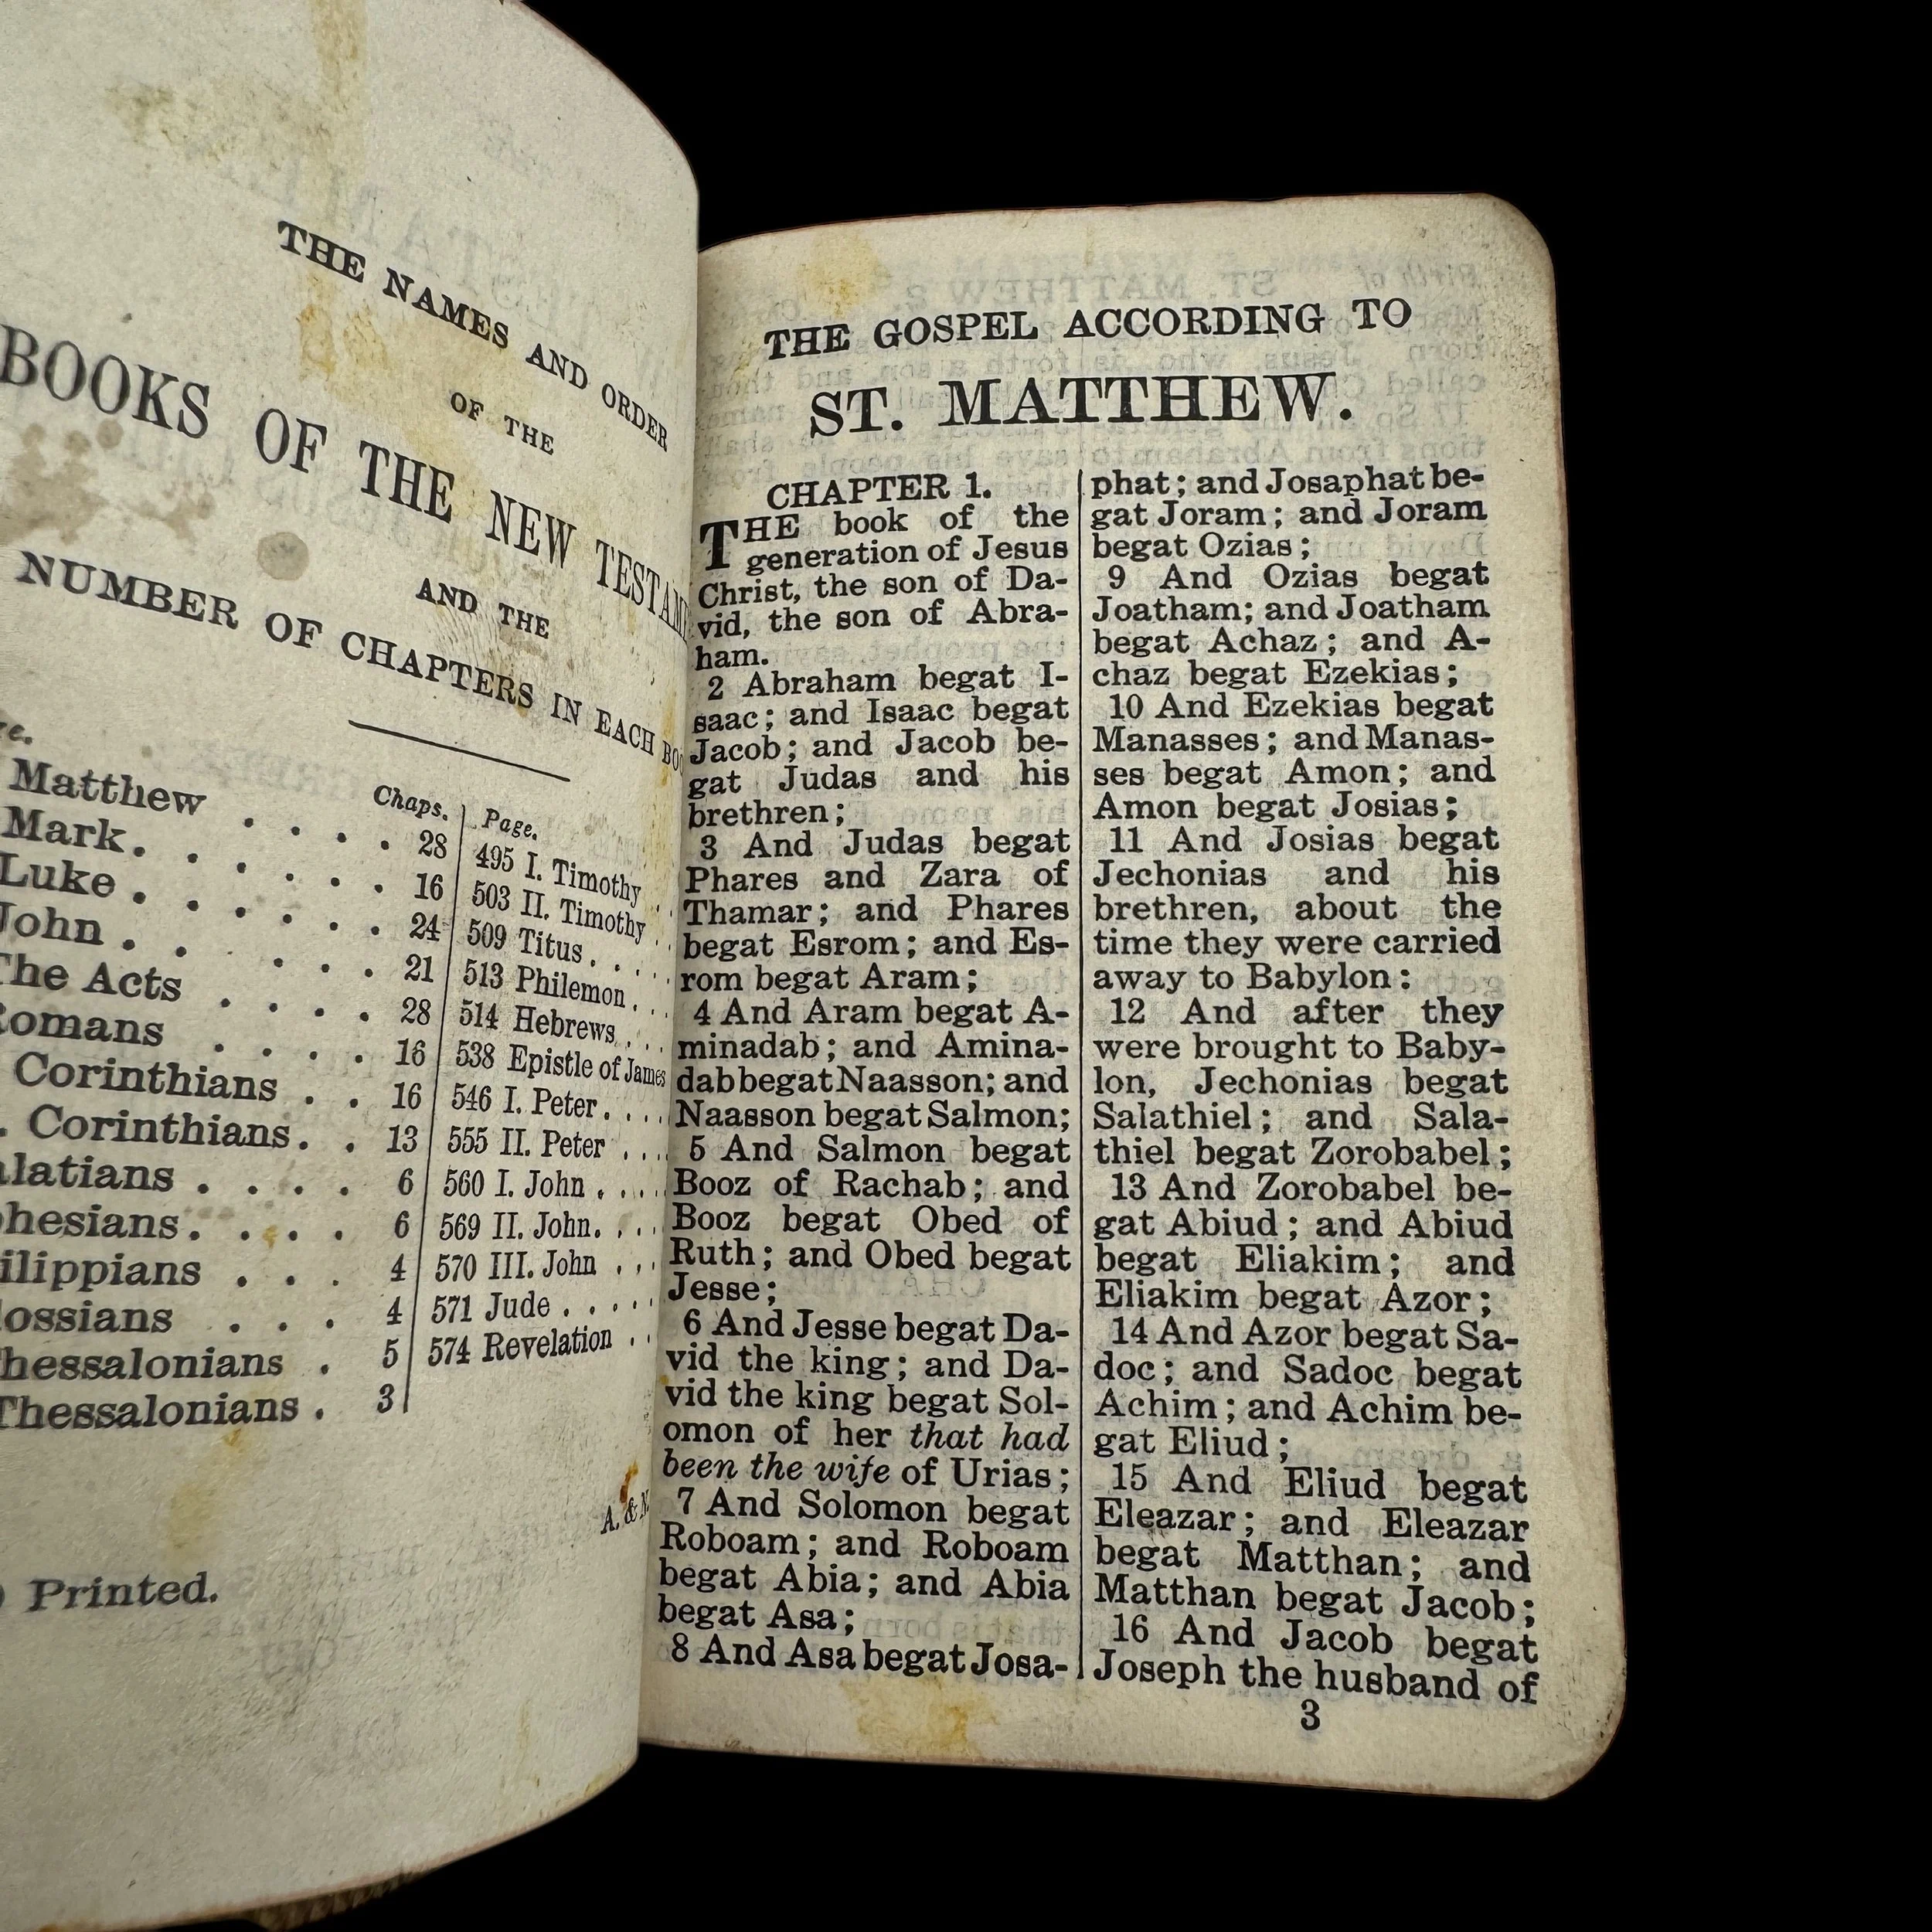 THE NAMES AND ORDER
OF THE
BOOKS OF THE NEW
AND THE
NUMBER OF CHAPTERS IN EACH
Chaps.
Matthew . . . . 28
Mark . . . . . . 16
Luke . . . . . . 24
John . . . . . 21
The Acts . . . . 28
. . . . 16
Corinthians . . 16
Corinthians . . 13
. . . . 6
. . . . 6
. . . 4
. . . 4
. 5
Thessalonians . 3
Page.
495 I. Timothy . .
503 II. Timothy . .
509 Titus . . . .
513 Philemon . . .
514 Hebrews . . .
538 Epistle of James
546 I. Peter . . . .
555 II. Peter . . . .
560 I. John . . . .
569 II. John . . . .
570 III. John . . .
571 Jude . . . . .
574 Revelation . .
A. &
Printed.
THE GOSPEL ACCORDING TO
ST. MATTHEW.
CHAPTER 1.
THE book of the
generation of Jesus
Christ, the son of Da-
vid, the son of Abra-
ham.
2 Abraham begat I-
saac; and Isaac begat
Jacob; and Jacob be-
gat Judas and his
brethren;
3 And Judas begat
Phares and Zara of
Thamar; and Phares
begat Esrom; and Es-
rom begat Aram;
4 And Aram begat A-
minadab; and Amina-
dab begat Naasson; and
Naasson begat Salmon;
5 And Salmon begat
Booz of Rachab; and
Booz begat Obed of
Ruth; and Obed begat
Jesse;
6 And Jesse begat Da-
vid the king; and Da-
vid the king begat Sol-
omon of her that had
been the wife of Urias;
7 And Solomon begat
Roboam; and Roboam
begat Abia; and Abia
begat Asa;
8 And Asa begat Josa-
phat; and Josaphat be-
gat Joram; and Joram
begat Ozias;
9 And Ozias begat
Joatham; and Joatham
begat Achaz; and A-
chaz begat Ezekias;
10 And Ezekias begat
Manasses; and Manas-
ses begat Amon; and
Amon begat Josias;
11 And Josias begat
Jechonias and his
brethren, about the
time they were carried
away to Babylon:
12 And after they
were brought to Baby-
lon, Jechonias begat
Salathiel; and Sala-
thiel begat Zorobabel;
13 And Zorobabel be-
gat Abiud; and Abiud
begat Eliakim; and
Eliakim begat Azor;
14 And Azor begat Sa-
doc; and Sadoc begat
Achim; and Achim be-
gat Eliud;
15 And Eliud begat
Eleazar; and Eleazar
begat Matthan; and
Matthan begat Jacob;
16 And Jacob begat
Joseph the husband of
3